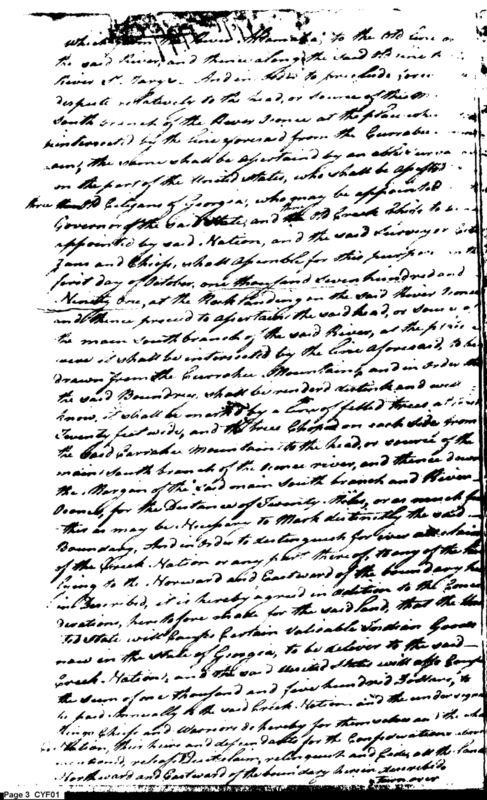 which the River Altamaha, to the Old Line on
the said River and thence along the said Old Line to
River St. Marys. And in order to preclude forever
dispute relatively to the head, or source of the
South branch of the River Oconee at the place
intersected by the line aforesaid from the Currahee
the same shall be assertained by an able surveyor
on the part of the United States, who shall be assisted
three Old Citizens of Georgia, who may be appointed
Governor of the said State, and three Old Creek Chiefs, to be
appointed by said Nation, and the said Surveyor
and Chiefs, shall assemble for this purpose on the
first day of October, one thousand seven hundred and
Ninety One, at the Rock Landing on the said River Oconee
and thence proceed to assertain the said head, or source of
the main South branch of the said River, at the place
were it shall be intersected by the line aforesaid, to be
drawn from the Currahee Mountain, and in order that
the said Boundrey shall be renderd distinct and well
know, it shall be marked by a line of felled trees at least
Twenty feet wide, and the trees Choped on each side from
the said Currahee Mountain to the head, or source of the
main South branch of the Oconee river, and thence down
the Margan of the said main South branch and River
Oconee, for the Distance of Twenty Miles, or as much
this as may be Necessary to Mark distinctly the said
Boundary, And in order to destinguish for ever all claim
of the Creek Nation or any part there of, to any of the
lying to the Norward and Eastward of the boundary
Described, it is hereby agreed in adition to the
heretofore make for the said land, that the
ted State will Cause Certain Valuable Indian Goods
now in the State of Georgia, to be deliver to the said
Creek Nation, and the said United States will also Cause
the sum of one thousand and five hundred Dollars, to
be paid Annually to the said Creek Nation and the
Kings Chiefs and Warriors do hereby for themselves and the
Nation, their heirs and
release, quit claim, relinquish and Cede, all the land
Northward and Eastward of the boundary herein described
turn over
Page 3 CYF01